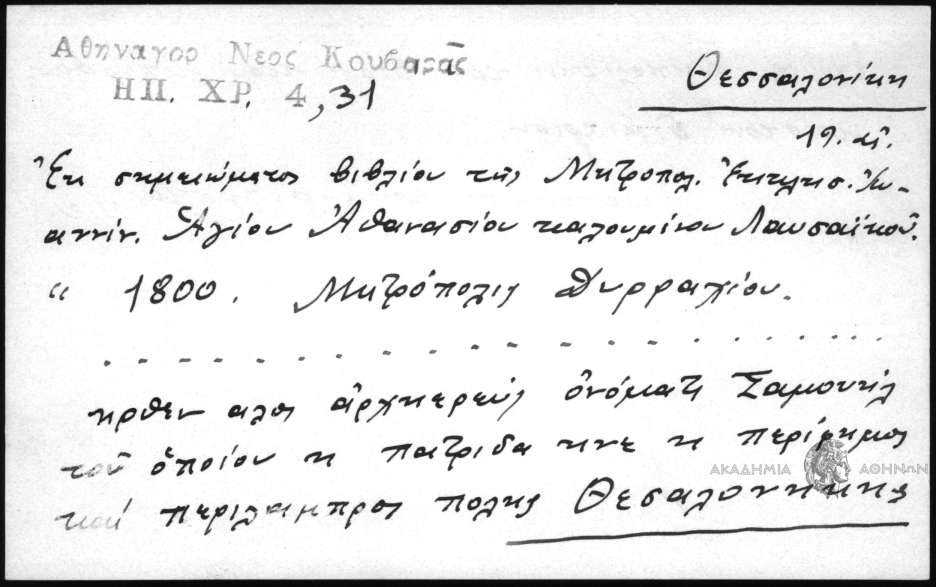 Αθηναγορ Νεος Κουβαρᾶς
ΗΠ. ΧΡ. 4, 31
Θεσσαλονίκη
19. αἰ.
Ἐκ σημειώματος βιβλίου τῆς Μητροπολ. Ἐκκλησ. Ἰω-
αννίν. Ἁγίου Ἀθανασίου καλουμένου Λαυσαϊκοῦ.
" 1800. Μητρόπολις Δυρραχίου.
. . . . . . . . . . . . . . . . . . . .
ηρθεν αλος ἀρχηερεὺς ὀνόματι Σαμουήλ
τοῦ ὁποίου η πατρίδα ηνε η περίφημος
καὶ περίλαμπρος πολης Θεσαλονηκης
ΑΚΑΔΗΜΙΑ ΑΘΗΝΩΝ